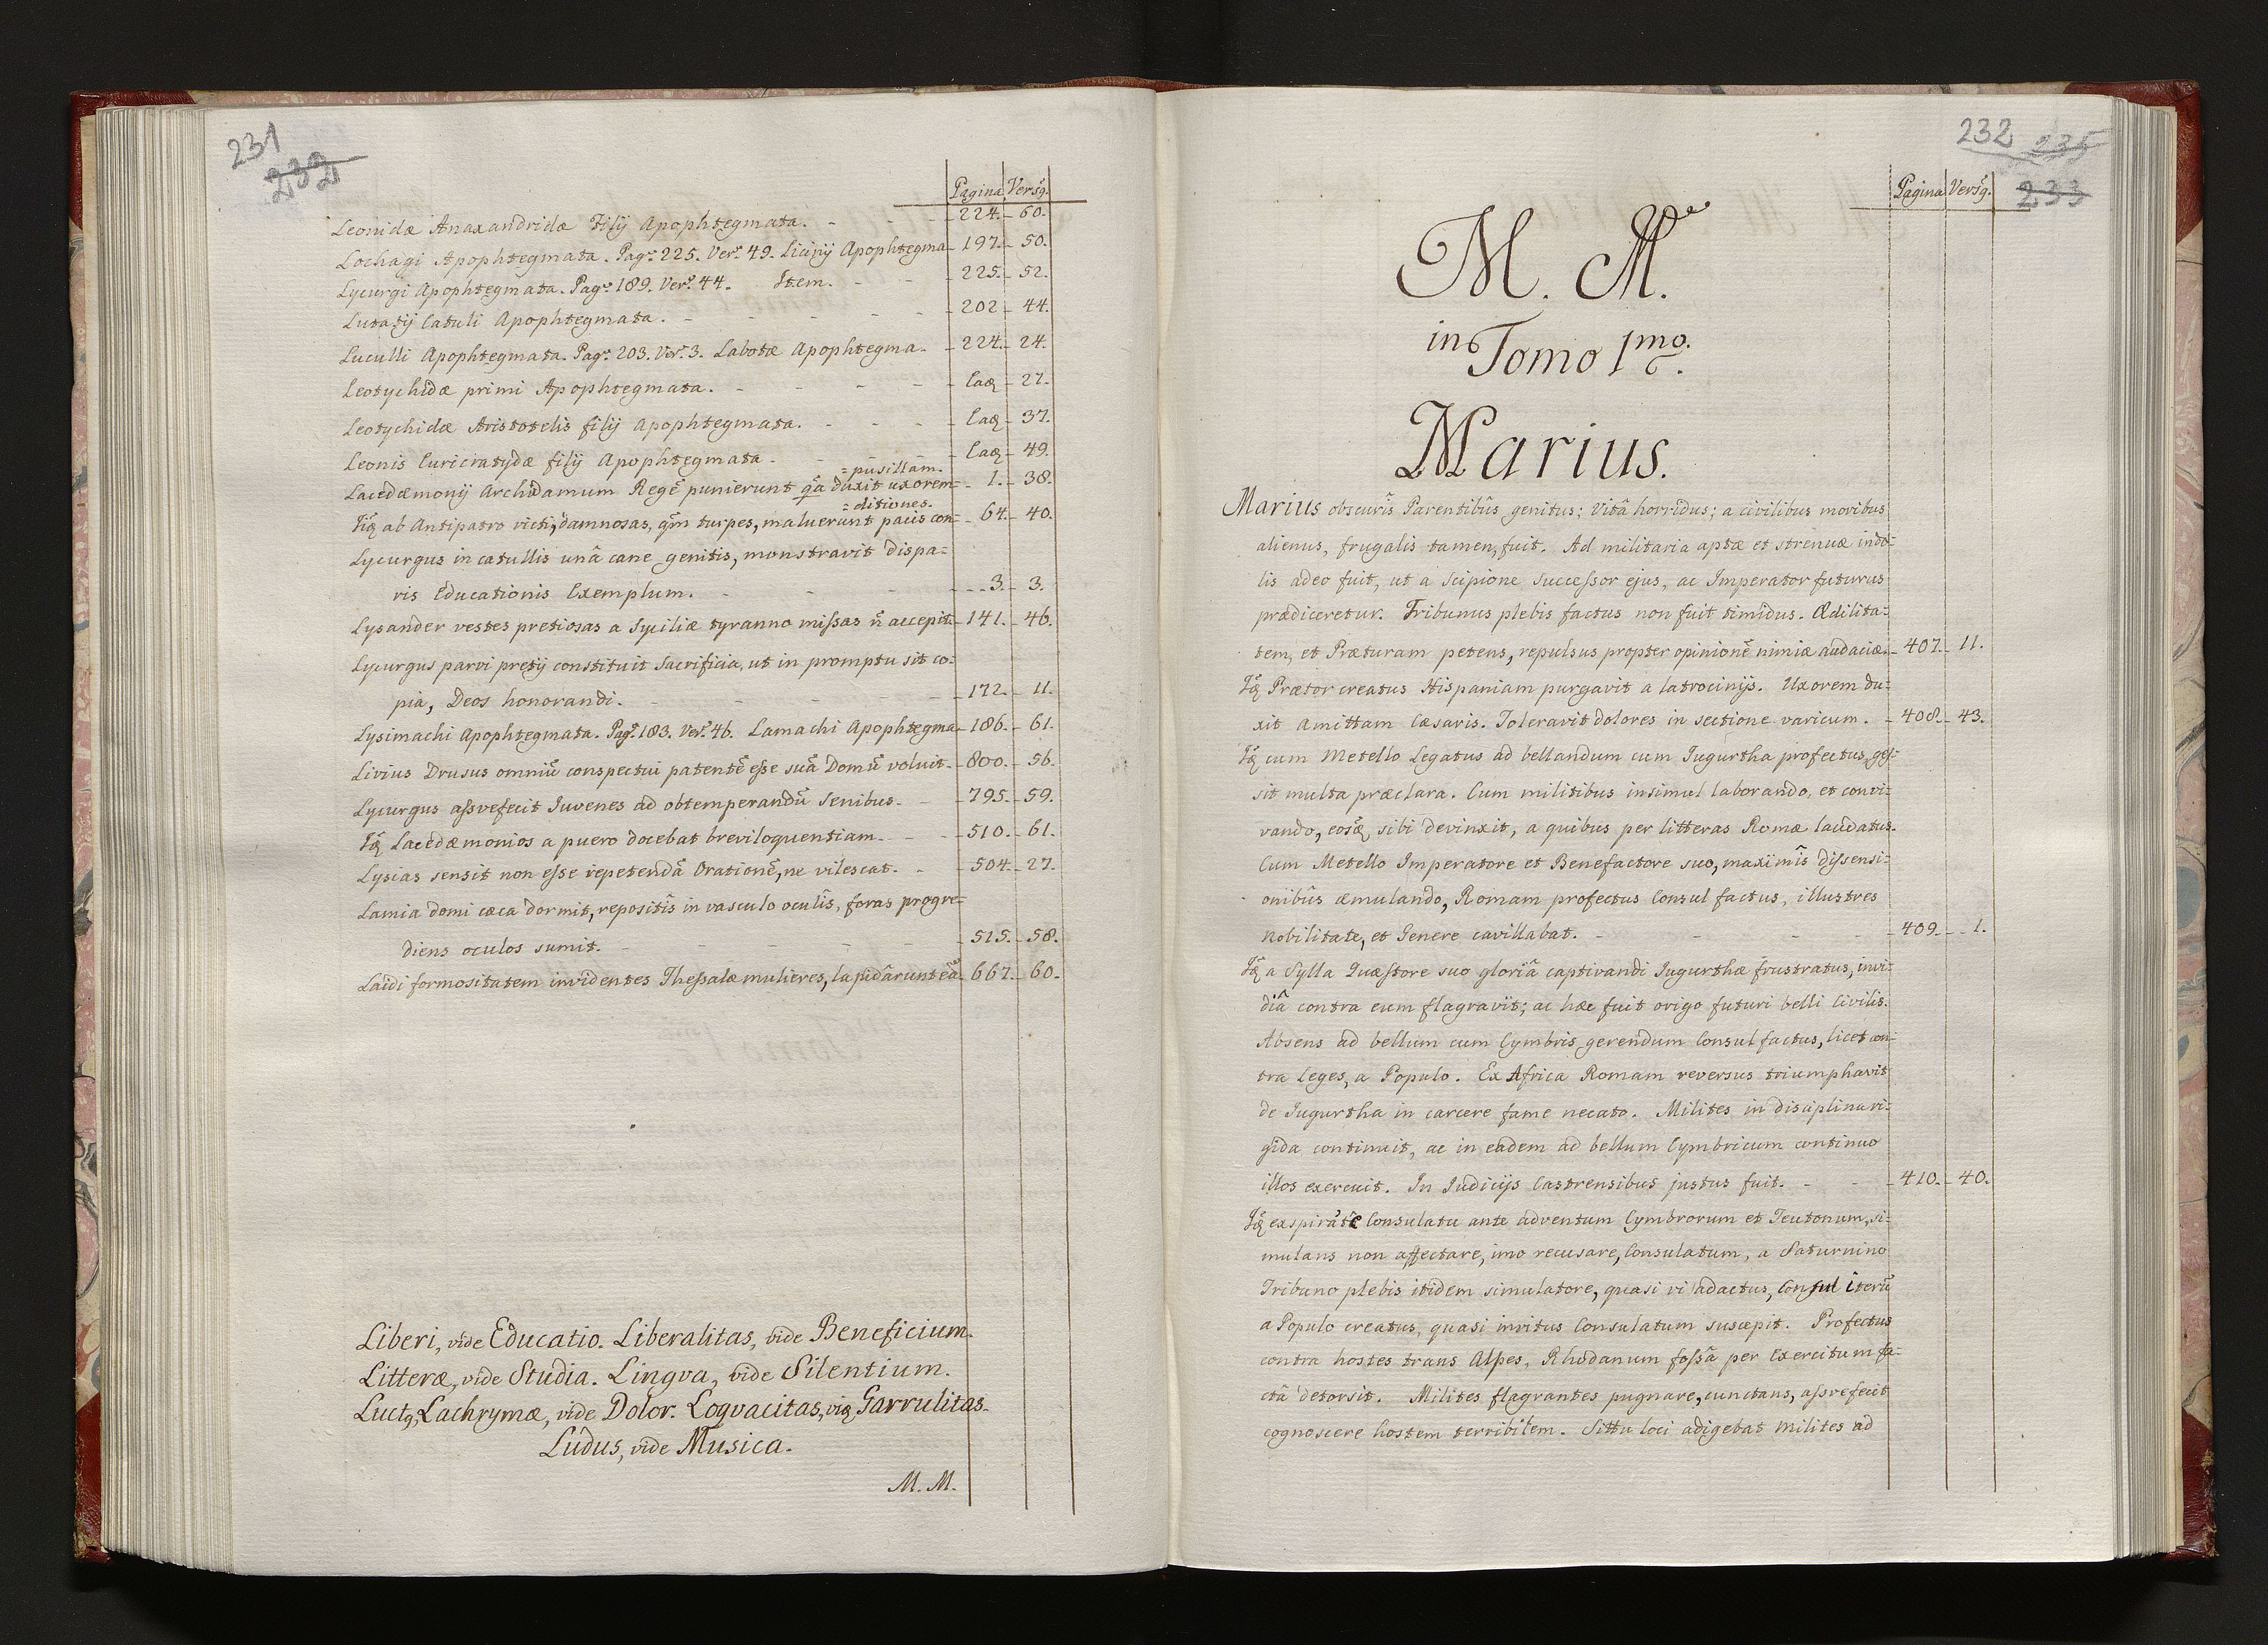 231
232
Pagina Versq.
Leonidæ Anaxandridæ Filij Apophtegmata. - - - 224. - 60.
Lochagi Apophtegmata. Pag: 225. Ver: 49. Licinij Apophtegma - 197. - 50.
Lycurgi Apophtegmata. Pag: 189. Ver: 44. Item. - - - 225. - 52.
Lutatij Catuli Apophtegmata. - - - - - 202 - 44.
Luculli Apophtegmata. Pag: 203. Ver: 3. Labotæ Apophtegma. - 224. - 24.
Leotychidæ primi Apophtegmata. - - - - Eaq - 27.
Leotychidæ Aristotelis filij Apophtegmata. - - - - Eaq - 37.
Leonis Euricratydæ filij Apophtegmata - - - - Eaq - 49.
= pusillam.
Lacedæmonij Archidamum Regē punierunt qa duxit uxorem= - 1. - 38.
= ditiones.
Iiq ab Antipatro victi, damnosas, qm turpes, maluerunt pacis con= - 64. - 40.
Lycurgus in catullis unâ cane genitis, monstravit dispa=
ris Educationis Exemplum. - - - - - 3. - 3.
Lysander vestes pretiosas a Syciliæ tyranno missas n̄ accepit. - 141. - 46.
Lycurgus parvi pretij constituit Sacrificia, ut in promptu sit co=
pia, Deos honorandi. - - - - 172. - 11.
Lysimachi Apophtegmata. Pag: 183. Ver: 46. Lamachi Apophtegma - 186. - 61.
Livius Drusus omniū conspectui patentē esse suā Domū voluit. - 800. - 56.
Lycurgus assvefecit Iuvenes ad obtemperandū Senibus. - - 795. - 59.
Iq Lacedæmonios a puero docebat breviloquentiam. - - - 510. - 61.
Lyscas sensit non esse repetendā Orationē, ne vilescat. - - 504. - 27.
Lamia domi cæca dormit, repositîs in vasculo oculîs, foras progre=
diens oculos sumit. - - - - - 515. - 58.
Laidi formositatem invidentes Thessalæ mulieres, lapidârunt eā - 667. - 60.
Liberi, vide Educatio. Liberalitas, vide Beneficium.
Litteræ, vide Studia. Lingva, vide Silentium.
Luctq, Lachrymæ, vide Dolor. Loqvacitas, viq Garrulitas.
Ludus, vide Musica.
M. M.
232 235
233
Pagina Versq.
M. M.
in Tomo 1mo.
Marius.
Marius obscurîs Parentibûs genitus; Vitâ horridus; a civilibus moribus
alienus, frugalis tamen, fuit. Ad militaria aptæ et strenuæ indo=
lis adeo fuit, ut a Scipione successor ejus, ac Imperator futurus
prædiceretur. Tribunus plebis factus non fuit timidus. Ædilita=
tem, et Præturam petens, repulsus propter opinionē nimiæ audaciæ. - 407. - 11.
Iq Prætor creatus Hispaniam purgavit a latrocinijs. Uxorem du=
xit Amittam Cæsaris. Toleravit dolores in sectione varicum. - 408. - 43.
Iq cum Metello Legatus ad bellandum cum Iugurtha profectus, ges=
sit multa præclara. Cum militibus insimul laborando, et convi=
vando, eosq sibi devinxit, a quibus per litteras Romæ laudatus.
Cum Metello Imperatore et Benefactore suo, maximîs dissensi=
onibûs æmulando, Romam profectus Consul factus, illustres
Nobilitate, et Genere cavillabat. - - - - 409. - 1.
Iq a Sylla Quæstore suo gloriâ captivandi Iugurthæ frustratus, invi=
diâ contra eum flagravit; ac hæc fuit origo futuri belli Civilis.
Absens ad bellum cum Cymbris gerendum Consul factus, licet con=
tra Leges, a Populo. Ex Africa Romam reversus triumphavit
de Iugurtha in carcere fame necato. Milites in disciplina ri=
gida continuit, ac in eadem ad bellum Cymbricum continuo
illos exercuit. In Iudicijs Castrensibus justus fuit. - - - 410. - 40.
Iq exspirāte Consulatu ante adventum Cymbrorum et Teutonum, si=
mulans non affectare, imo recusare, Consulatum, a Saturnino
Tribuno plebis itidem simulatore, quasi vi adactus, Consul iterū
a Populo creatus, quasi invitus Consulatum suscepit. Profectus
contra hostes trans Alpes, Rhodanum fossâ per Exercitum fa=
ctâ detorsit. Milites flagrantes pugnare, cunctans, assvefecit
cognoscere hostem terribilem. Sittu loci adigebat Milites ad